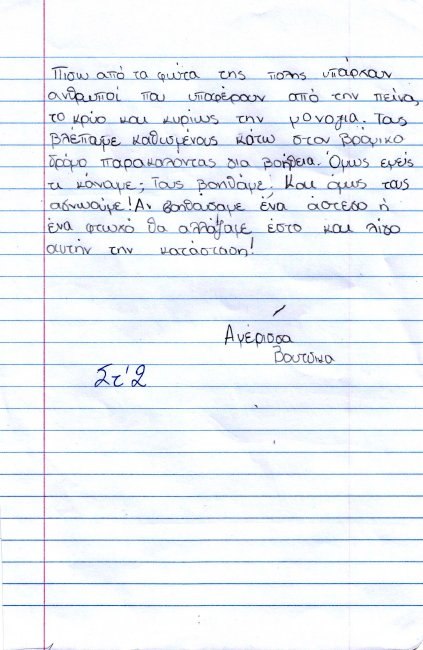 Πισω από τα φώτα της πολης υπάρχουν
ανθρωποί που υποφέρουν από την πείνα,
το κρύο και κυρίως την μοναξια. Τους
βλέπαμε καθισμένους κάτω στον βρόμικο
δρόμο παρακαλόντας για βοήθεια. Όμως εμείς
τι κάναμε; Τους βοηθάμε; Και όμως τους
αγνωούμε! Αν βοηθάσαμε ένα άστεγο ή
ένα φτωχό θα αλλάζαμε έστο και λίγο
αυτήν την κατάσταση!
Βουτσινα
Στ' 2